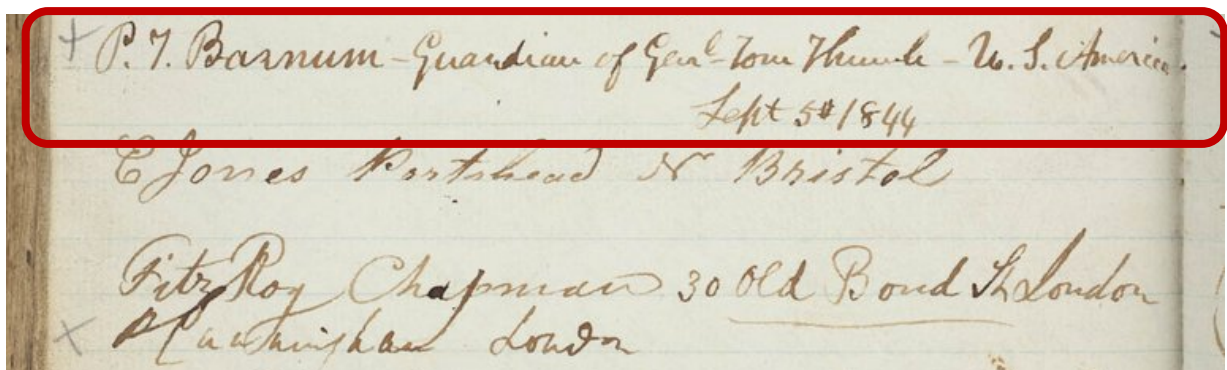 P. T. Barnum - Guardian of Genl. Tom Thumb - U. S. America.
Sept 5th 1844
E Jones Portshead Nr Bristol
Fitz Roy Chapman 30 Old Bond St London
Cunningham London